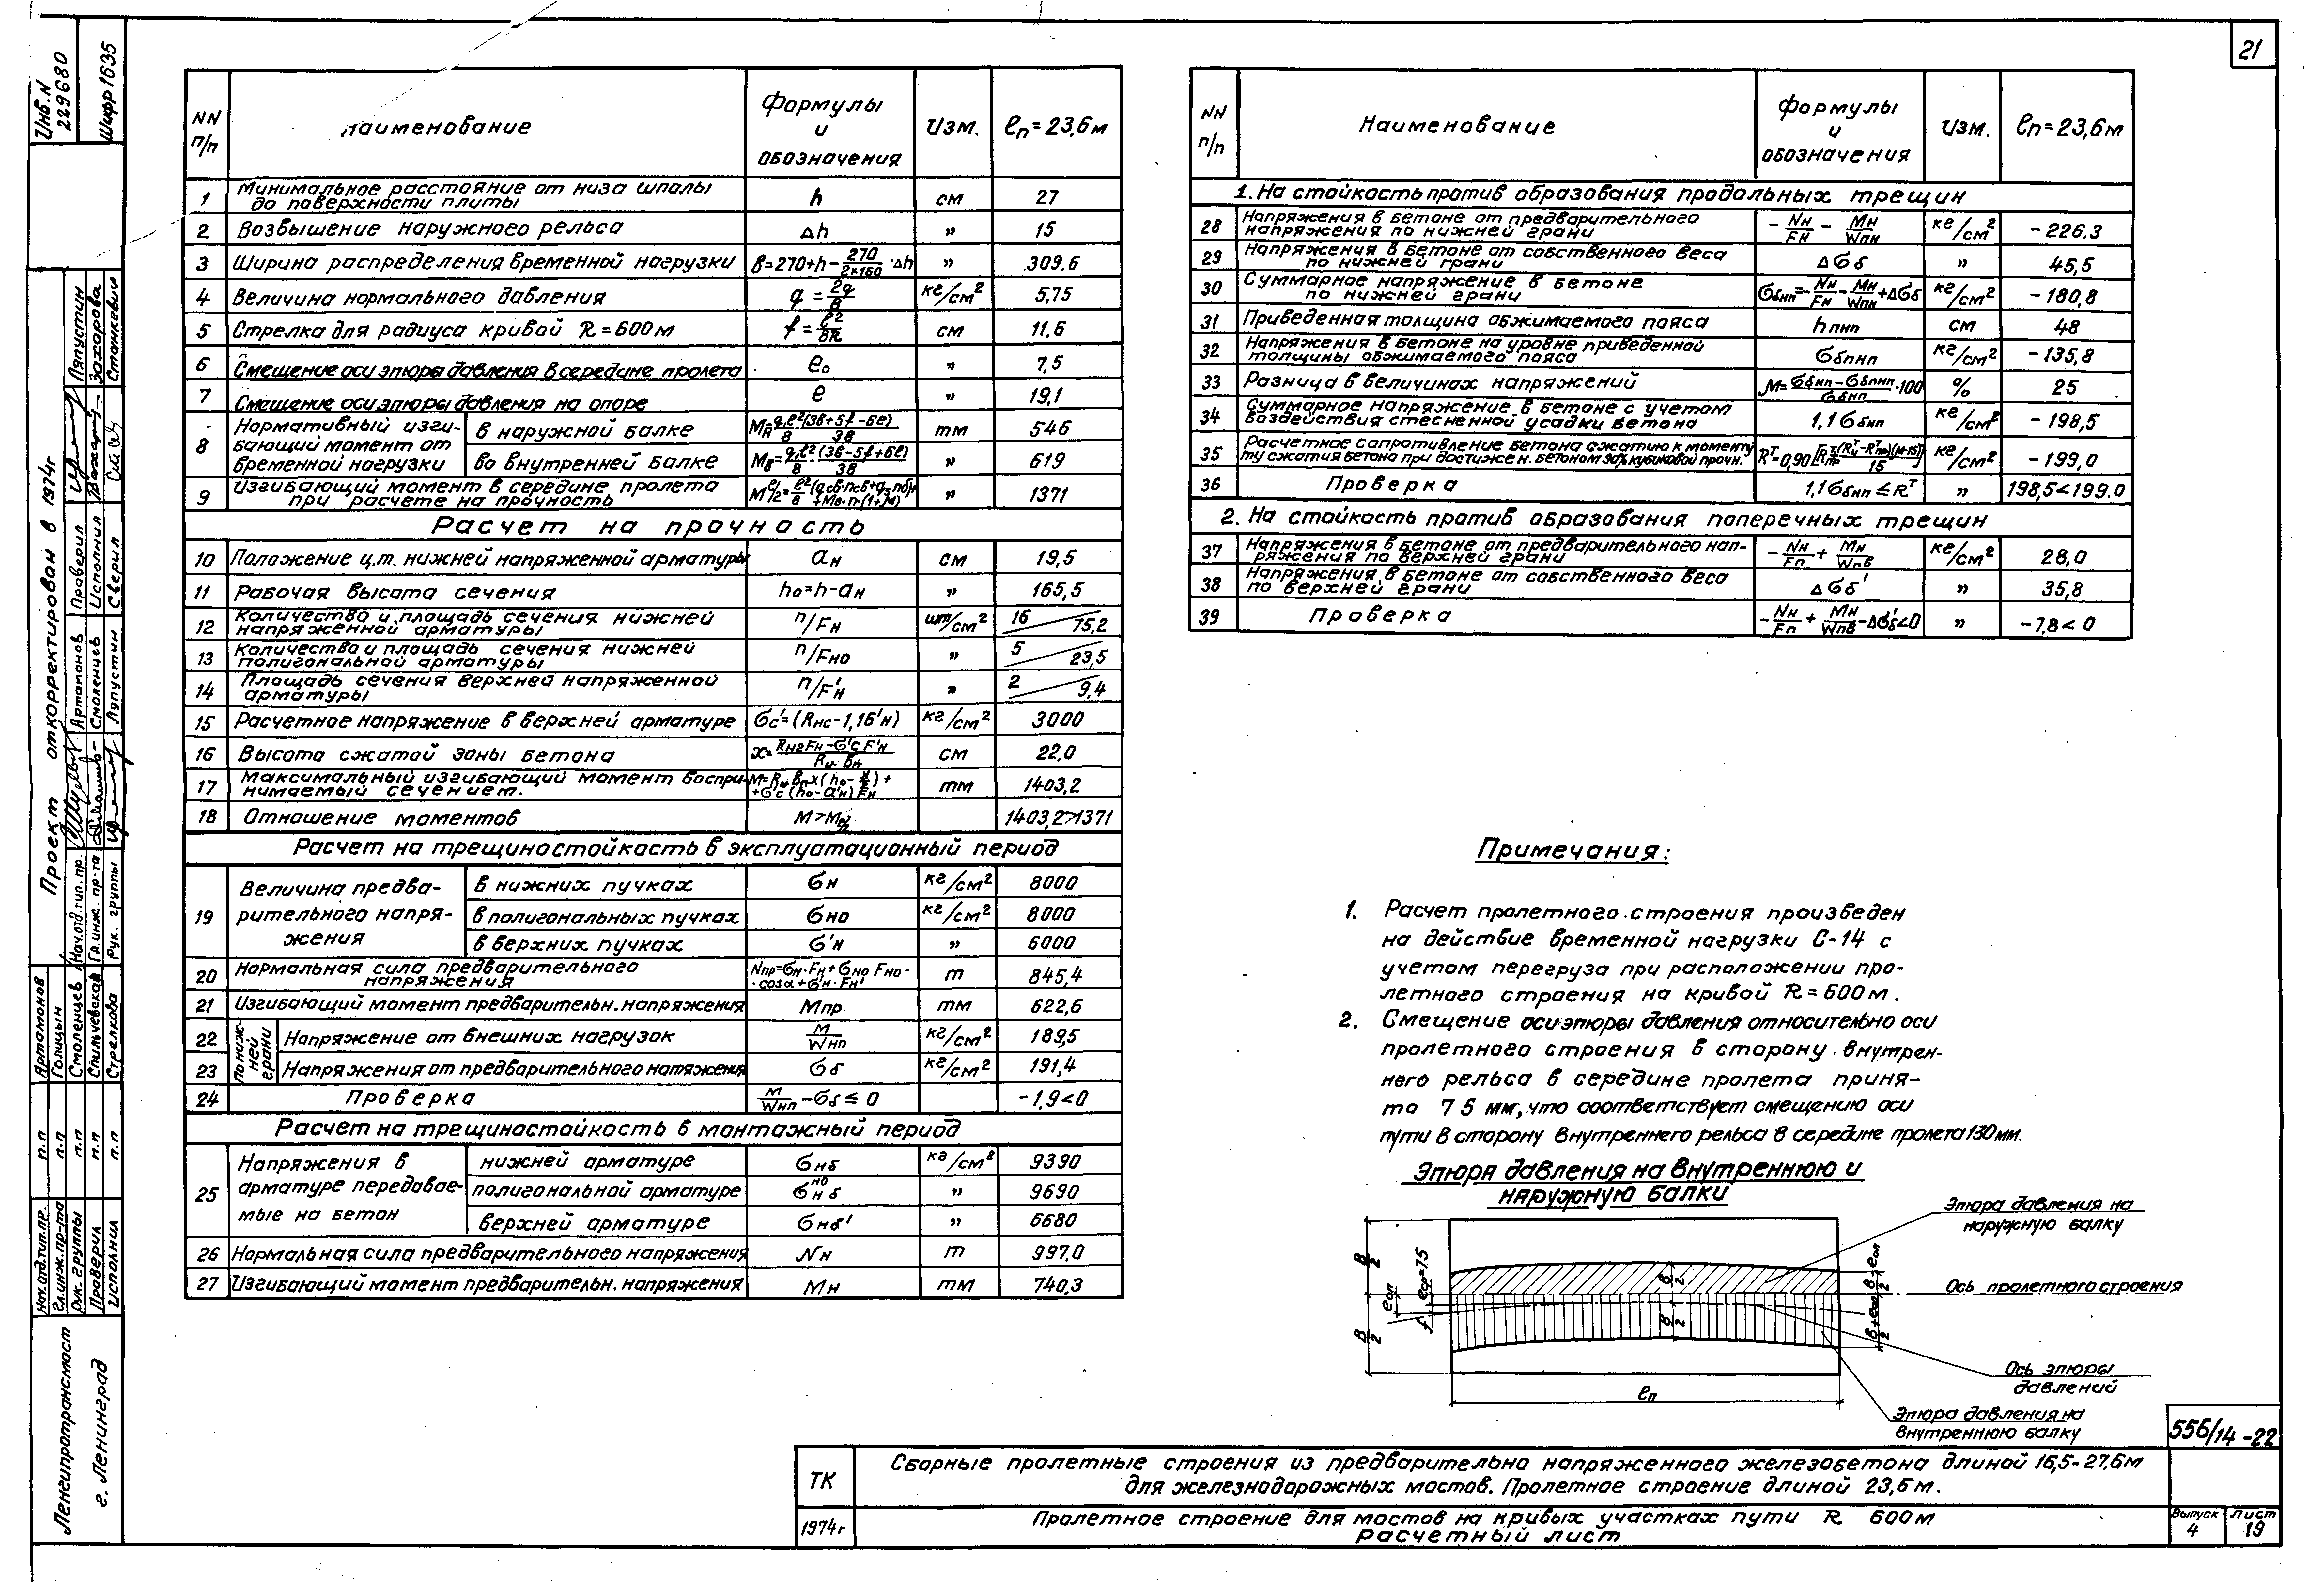 21
Инв. N
229680
Шифр 1635
Проект откорректирован в 1974г
Нач.отд.тип.пр.
Гл.инж.пр-та
Рук. группы
Артамонов
Смоленцев
Ляпустин
Проверил
Исполнил
Сверил
Ляпустин
Захарова
Станкевич
Нач.отд.тип.пр.
Гл.инж.пр-та
Рук. группы
Проверил
Исполнил
п.п
п.п
п.п
п.п
п.п
Артамонов
Голицын
Смоленцев
Спильчевская
Стрелкова
Ленгипротрансмост
г. Ленинград
NN п/п
Наименование
Формулы и обозначения
Изм.
ℓп = 23,6м
1 Минимальное расстояние от низа шпалы до поверхности плиты h см 27
2 Возвышение наружного рельса Δh " 15
3 Ширина распределения временной нагрузки в=270+h-270/2×160·Δh " 309.6
4 Величина нормального давления q = 2q/в кг/см² 5,75
5 Стрелка для радиуса кривой R=600м f = ℓ²/8R см 11,6
6 Смещение оси эпюры давления в середине пролета e₀ " 7,5
7 Смещение оси эпюры давления на опоре e " 19,1
8 Нормативный изгибающий момент от временной нагрузки
в наружной балке Mн=q·ℓ²/8·(3в+5f-6e)/3в тм 546
во внутренней балке Mв=q·ℓ²/8·(3в-5f+6e)/3в " 619
9 Изгибающий момент в середине пролета при расчете на прочность " 1371
Расчет на прочность
10 Положение ц.т. нижней напряженной арматуры aн см 19,5
11 Рабочая высота сечения h₀=h-aн " 165,5
12 Количество и площадь сечения нижней напряженной арматуры n/Fн шт/см² 16/75,2
13 Количество и площадь сечения нижней полигональной арматуры n/Fно " 5/23,5
14 Площадь сечения верхней напряженной арматуры n/F'н " 2/9,4
15 Расчетное напряжение в верхней арматуре σ'с=(Rнс-1,1σ'н) кг/см² 3000
16 Высота сжатой зоны бетона x=Rн2Fн-σ'сF'н/Rи вп см 22,0
17 Максимальный изгибающий момент воспринимаемый сечением. M=Rи впx(h₀-x/2)+σ'с(h₀-a'н)F'н тм 1403,2
18 Отношение моментов M>Mℓ/2 1403,2>1371
Расчет на трещиностойкость в эксплуатационный период
19 Величина предварительного напряжения
в нижних пучках σн кг/см² 8000
в полигональных пучках σно кг/см² 8000
в верхних пучках σ'н " 6000
20 Нормальная сила предварительного напряжения Nпр=σн·Fн+σно Fно·cosα+σ'н·Fн' т 845,4
21 Изгибающий момент предварительн. напряжения Mпр тм 622,6
По нижней грани
22 Напряжение от внешних нагрузок M/Wнп кг/см² 189,5
23 Напряжения от предварительного натяжения σб кг/см² 191,4
24 Проверка M/Wнп-σб≤0 -1,9<0
Расчет на трещиностойкость в монтажный период
25 Напряжения в арматуре передаваемые на бетон
нижней арматуре σнб кг/см² 9390
полигональной арматуре σнб но " 9690
верхней арматуре σнб' " 6680
26 Нормальная сила предварительного напряжения Nн т 997,0
27 Изгибающий момент предварительн. напряжения Mн тм 740,3
NN п/п
Наименование
Формулы и обозначения
Изм.
ℓп = 23,6м
1. На стойкость против образования продольных трещин
28 Напряжения в бетоне от предварительного напряжения по нижней грани -Nн/Fн - Mн/Wпн кг/см² -226,3
29 Напряжения в бетоне от собственного веса по нижней грани Δσб " 45,5
30 Суммарное напряжение в бетоне по нижней грани σбнп=-Nн/Fн-Mн/Wпн+Δσб кг/см² -180,8
31 Приведенная толщина обжимаемого пояса hпнп см 48
32 Напряжения в бетоне на уровне приведенной толщины обжимаемого пояса σбпнп кг/см² -135,8
33 Разница в величинах напряжений M=σбнп-σбпнп/σбнп·100 % 25
34 Суммарное напряжение в бетоне с учетом воздействия стесненной усадки бетона 1,1σбнп кг/см² -198,5
35 Расчетное сопротивление бетона сжатию к моменту ту сжатия бетона при достижен. бетоном 90% кубиковой прочн. кг/см² -199,0
36 Проверка 1,1σбнп≤Rᵀ " 198,5<199.0
2. На стойкость против образования поперечных трещин
37 Напряжения в бетоне от предварительного напряжения по верхней грани -Nн/Fп + Mн/Wпв кг/см² 28,0
38 Напряжения в бетоне от собственного веса по верхней грани Δσб' " 35,8
39 Проверка -Nн/Fп+Mн/Wпв-Δσ'б<0 " -7,8<0
Примечания:
1. Расчет пролетного строения произведен
на действие временной нагрузки С-14 с
учетом перегруза при расположении про-
летного строения на кривой R=600м.
2. Смещение оси эпюры давления относительно оси
пролетного строения в сторону внутрен-
него рельса в середине пролета приня-
то 75 мм, что соответствует смещению оси
пути в сторону внутреннего рельса в середине пролета 130мм.
Эпюра давления на внутреннюю и
наружную балки
Эпюра давления на
наружную балку
Ось пролетного строения
Ось эпюры
давлений
Эпюра давления на
внутреннюю балку
B/2
B/2
eоп
f
eср=75
в/2
в/2
в/2-eоп
в/2+eоп
ℓп
556/14-22
ТК
1974г
Сборные пролетные строения из предварительно напряженного железобетона длиной 16,5-27,6м
для железнодорожных мостов. Пролетное строение длиной 23,6м.
Пролетное строение для мостов на кривых участках пути R 600м
Расчетный лист
Выпуск
4
Лист
19